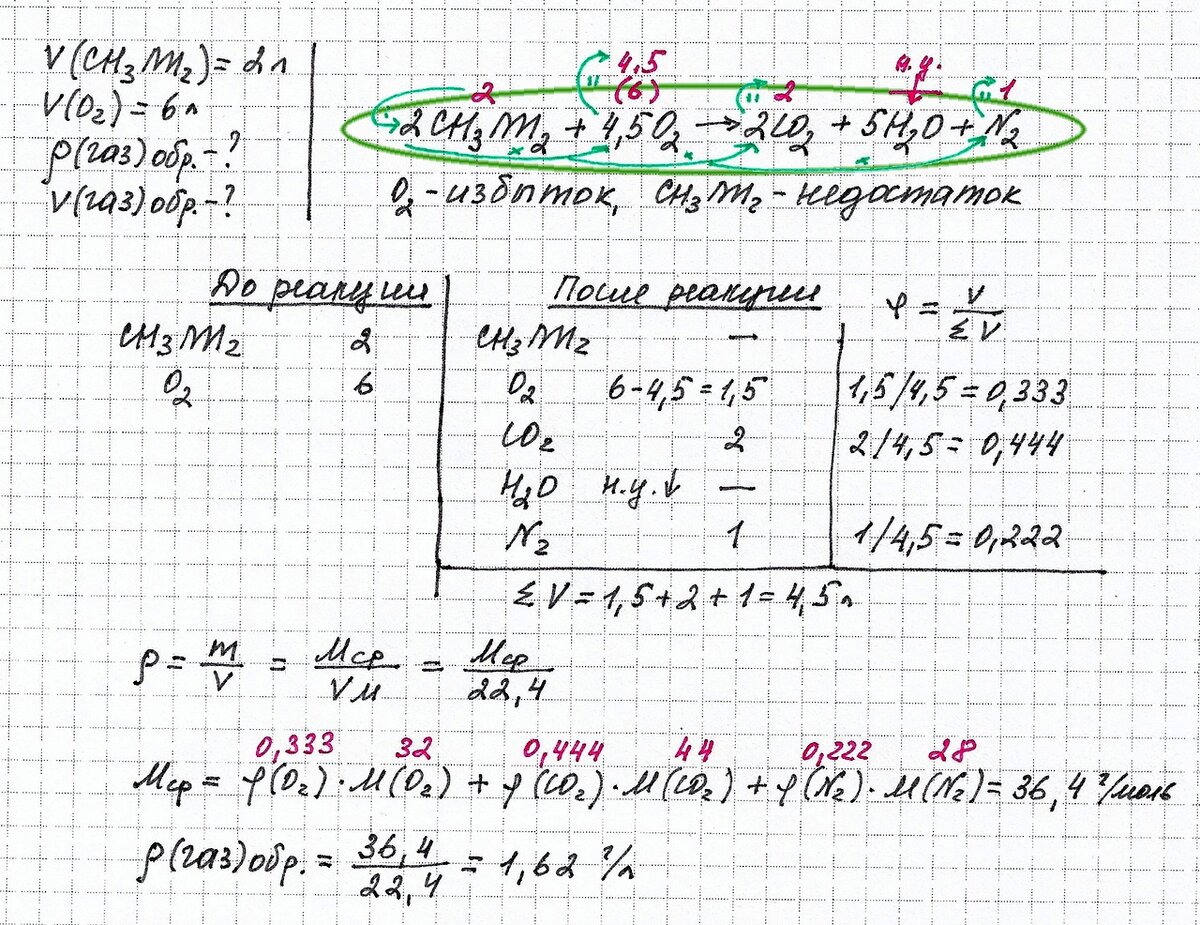 V(CH₃NH₂) = 2л
V(O₂) = 6л
ρ(газ)обр. - ?
V(газ)обр. - ?
2 4,5 (6) 2 н.у. 1
2CH₃NH₂ + 4,5O₂ → 2CO₂ + 5H₂O + N₂
O₂ - избыток, CH₃NH₂ - недостаток
До реакции После реакции φ = V/ΣV
CH₃NH₂ 2 CH₃NH₂ —
O₂ 6 O₂ 6-4,5 = 1,5 1,5/4,5 = 0,333
CO₂ 2 2/4,5 = 0,444
H₂O н.у.↓ —
N₂ 1 1/4,5 = 0,222
Σ V = 1,5 + 2 + 1 = 4,5л
ρ = m/V = Mср/Vм = Mср/22,4
0,333 32 0,444 44 0,222 28
Mср = φ(O₂)·M(O₂) + φ(CO₂)·M(CO₂) + φ(N₂)·M(N₂) = 36,4 г/моль
ρ(газ)обр. = 36,4/22,4 = 1,62 г/л